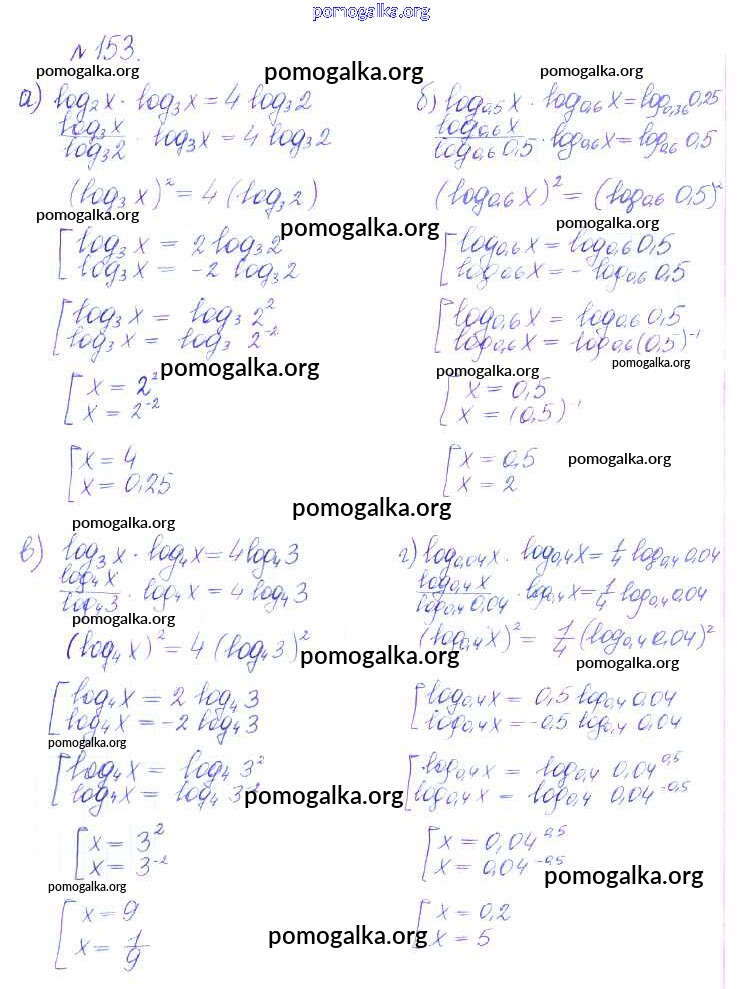 pomogalka.org
№ 153.
pomogalka.org pomogalka.org pomogalka.org
а) log₂x · log₃x = 4 log₃2
log₃x / log₃2 · log₃x = 4 log₃2
(log₃x)² = 4 (log₃2)
pomogalka.org
pomogalka.org
[ log₃x = 2 log₃2
log₃x = -2 log₃2
[ log₃x = log₃2²
log₃x = log₃2⁻²
pomogalka.org
[ x = 2²
x = 2⁻²
[ x = 4
x = 0,25
б) log₀,₅x · log₀,₆x = log₀,₃₆0,25
log₀,₆x / log₀,₆0,5 · log₀,₆x = log₀,₆0,5
(log₀,₆x)² = (log₀,₆0,5)²
pomogalka.org
[ log₀,₆x = log₀,₆0,5
log₀,₆x = -log₀,₆0,5
[ log₀,₆x = log₀,₆0,5
log₀,₆x = log₀,₆(0,5)⁻¹
pomogalka.org
pomogalka.org
[ x = 0,5
x = (0,5)⁻¹
[ x = 0,5
x = 2
pomogalka.org
pomogalka.org
pomogalka.org
в) log₃x · log₄x = 4 log₄3
log₄x / log₄3 · log₄x = 4 log₄3
pomogalka.org
(log₄x)² = 4 (log₄3)²
pomogalka.org
[ log₄x = 2 log₄3
log₄x = -2 log₄3
pomogalka.org
[ log₄x = log₄3²
log₄x = log₄3⁻²
pomogalka.org
[ x = 3²
x = 3⁻²
pomogalka.org
[ x = 9
x = 1/9
г) log₀,₀₄x · log₀,₄x = 1/4 log₀,₄0,04
log₀,₄x / log₀,₄0,04 · log₀,₄x = 1/4 log₀,₄0,04
(log₀,₄x)² = 1/4 (log₀,₄0,04)²
pomogalka.org
[ log₀,₄x = 0,5 log₀,₄0,04
log₀,₄x = -0,5 log₀,₄0,04
[ log₀,₄x = log₀,₄0,04^0,5
log₀,₄x = log₀,₄0,04^-0,5
[ x = 0,04^0,5
x = 0,04^-0,5
pomogalka.org
[ x = 0,2
x = 5
pomogalka.org